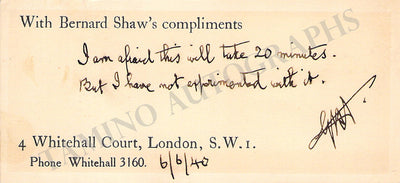 With Bernard Shaw's compliments
I am afraid this will take 20 minutes.
But I have not experimented with it.
GBS
4 Whitehall Court, London, S.W.1.
Phone Whitehall 3160. 6/6/40
TAMINO AUTOGRAPHS